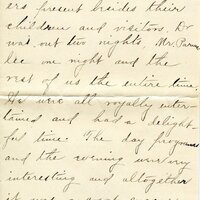 ers present besides their
children and visitors. Dr
was out two nights, Mr. Parme
lee one night and the
rest of us the entire time.
We were all royally enter
tained and had a delight
ful time. The day programs
and the evening were very
interesting and altogether
it was a great